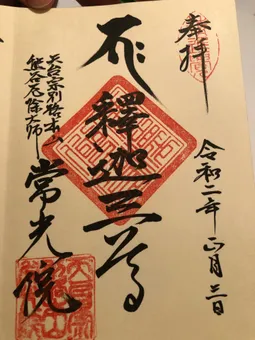 奉拝
令和二年正月三日
釋迦三尊
天台宗別格本山
熊谷厄除大師
常光院